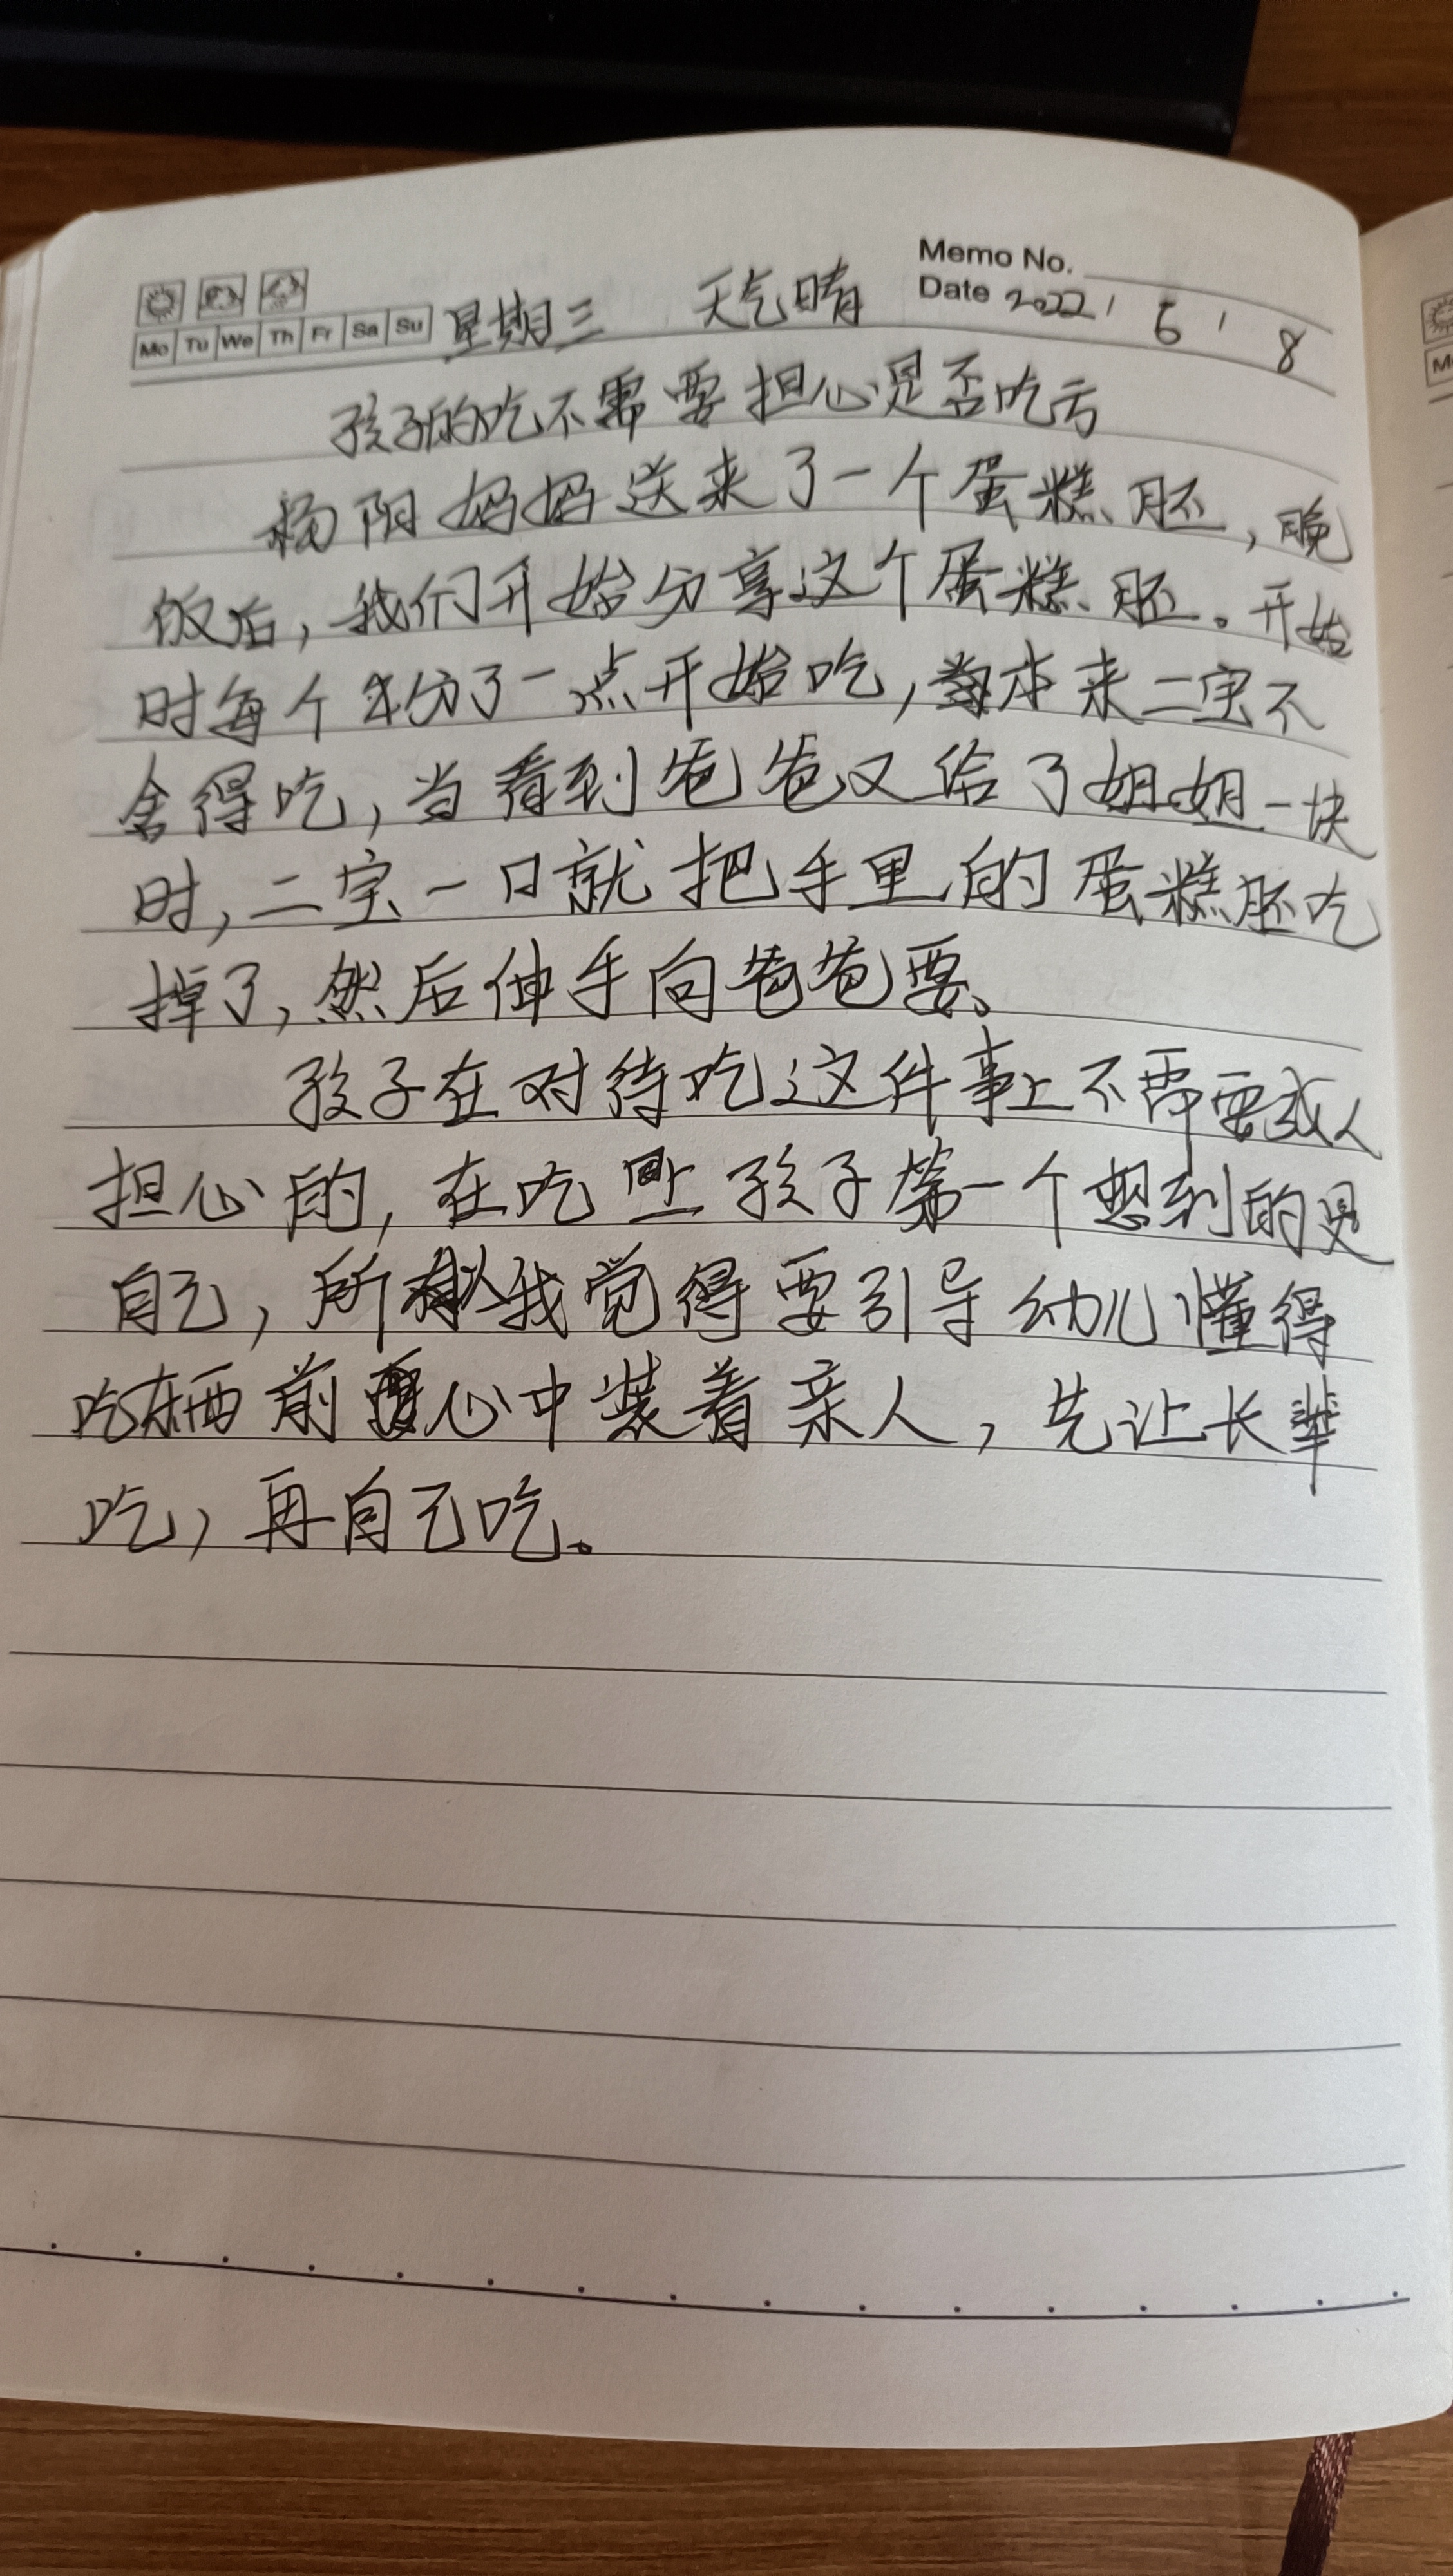 Memo No.
Mo Tu We Th Fr Sa Su 星期三 天气晴 Date 2022 / 6 / 8
孩子的吃不需要担心是否吃亏
杨阳妈妈送来了一个蛋糕胚，晚
饭后，我们开始分享这个蛋糕胚。开始
时每个分了一点开始吃，本来二宝不
舍得吃，当看到爸爸又给了姐姐一块
时，二宝一口就把手里的蛋糕胚吃
掉了，然后伸手向爸爸要。
孩子在对待吃这件事上不需要成人
担心的，在吃上孩子第一个想到的是
自己，所以我觉得要引导幼儿懂得
吃东西前要心中装着亲人，先让长辈
吃，再自己吃。